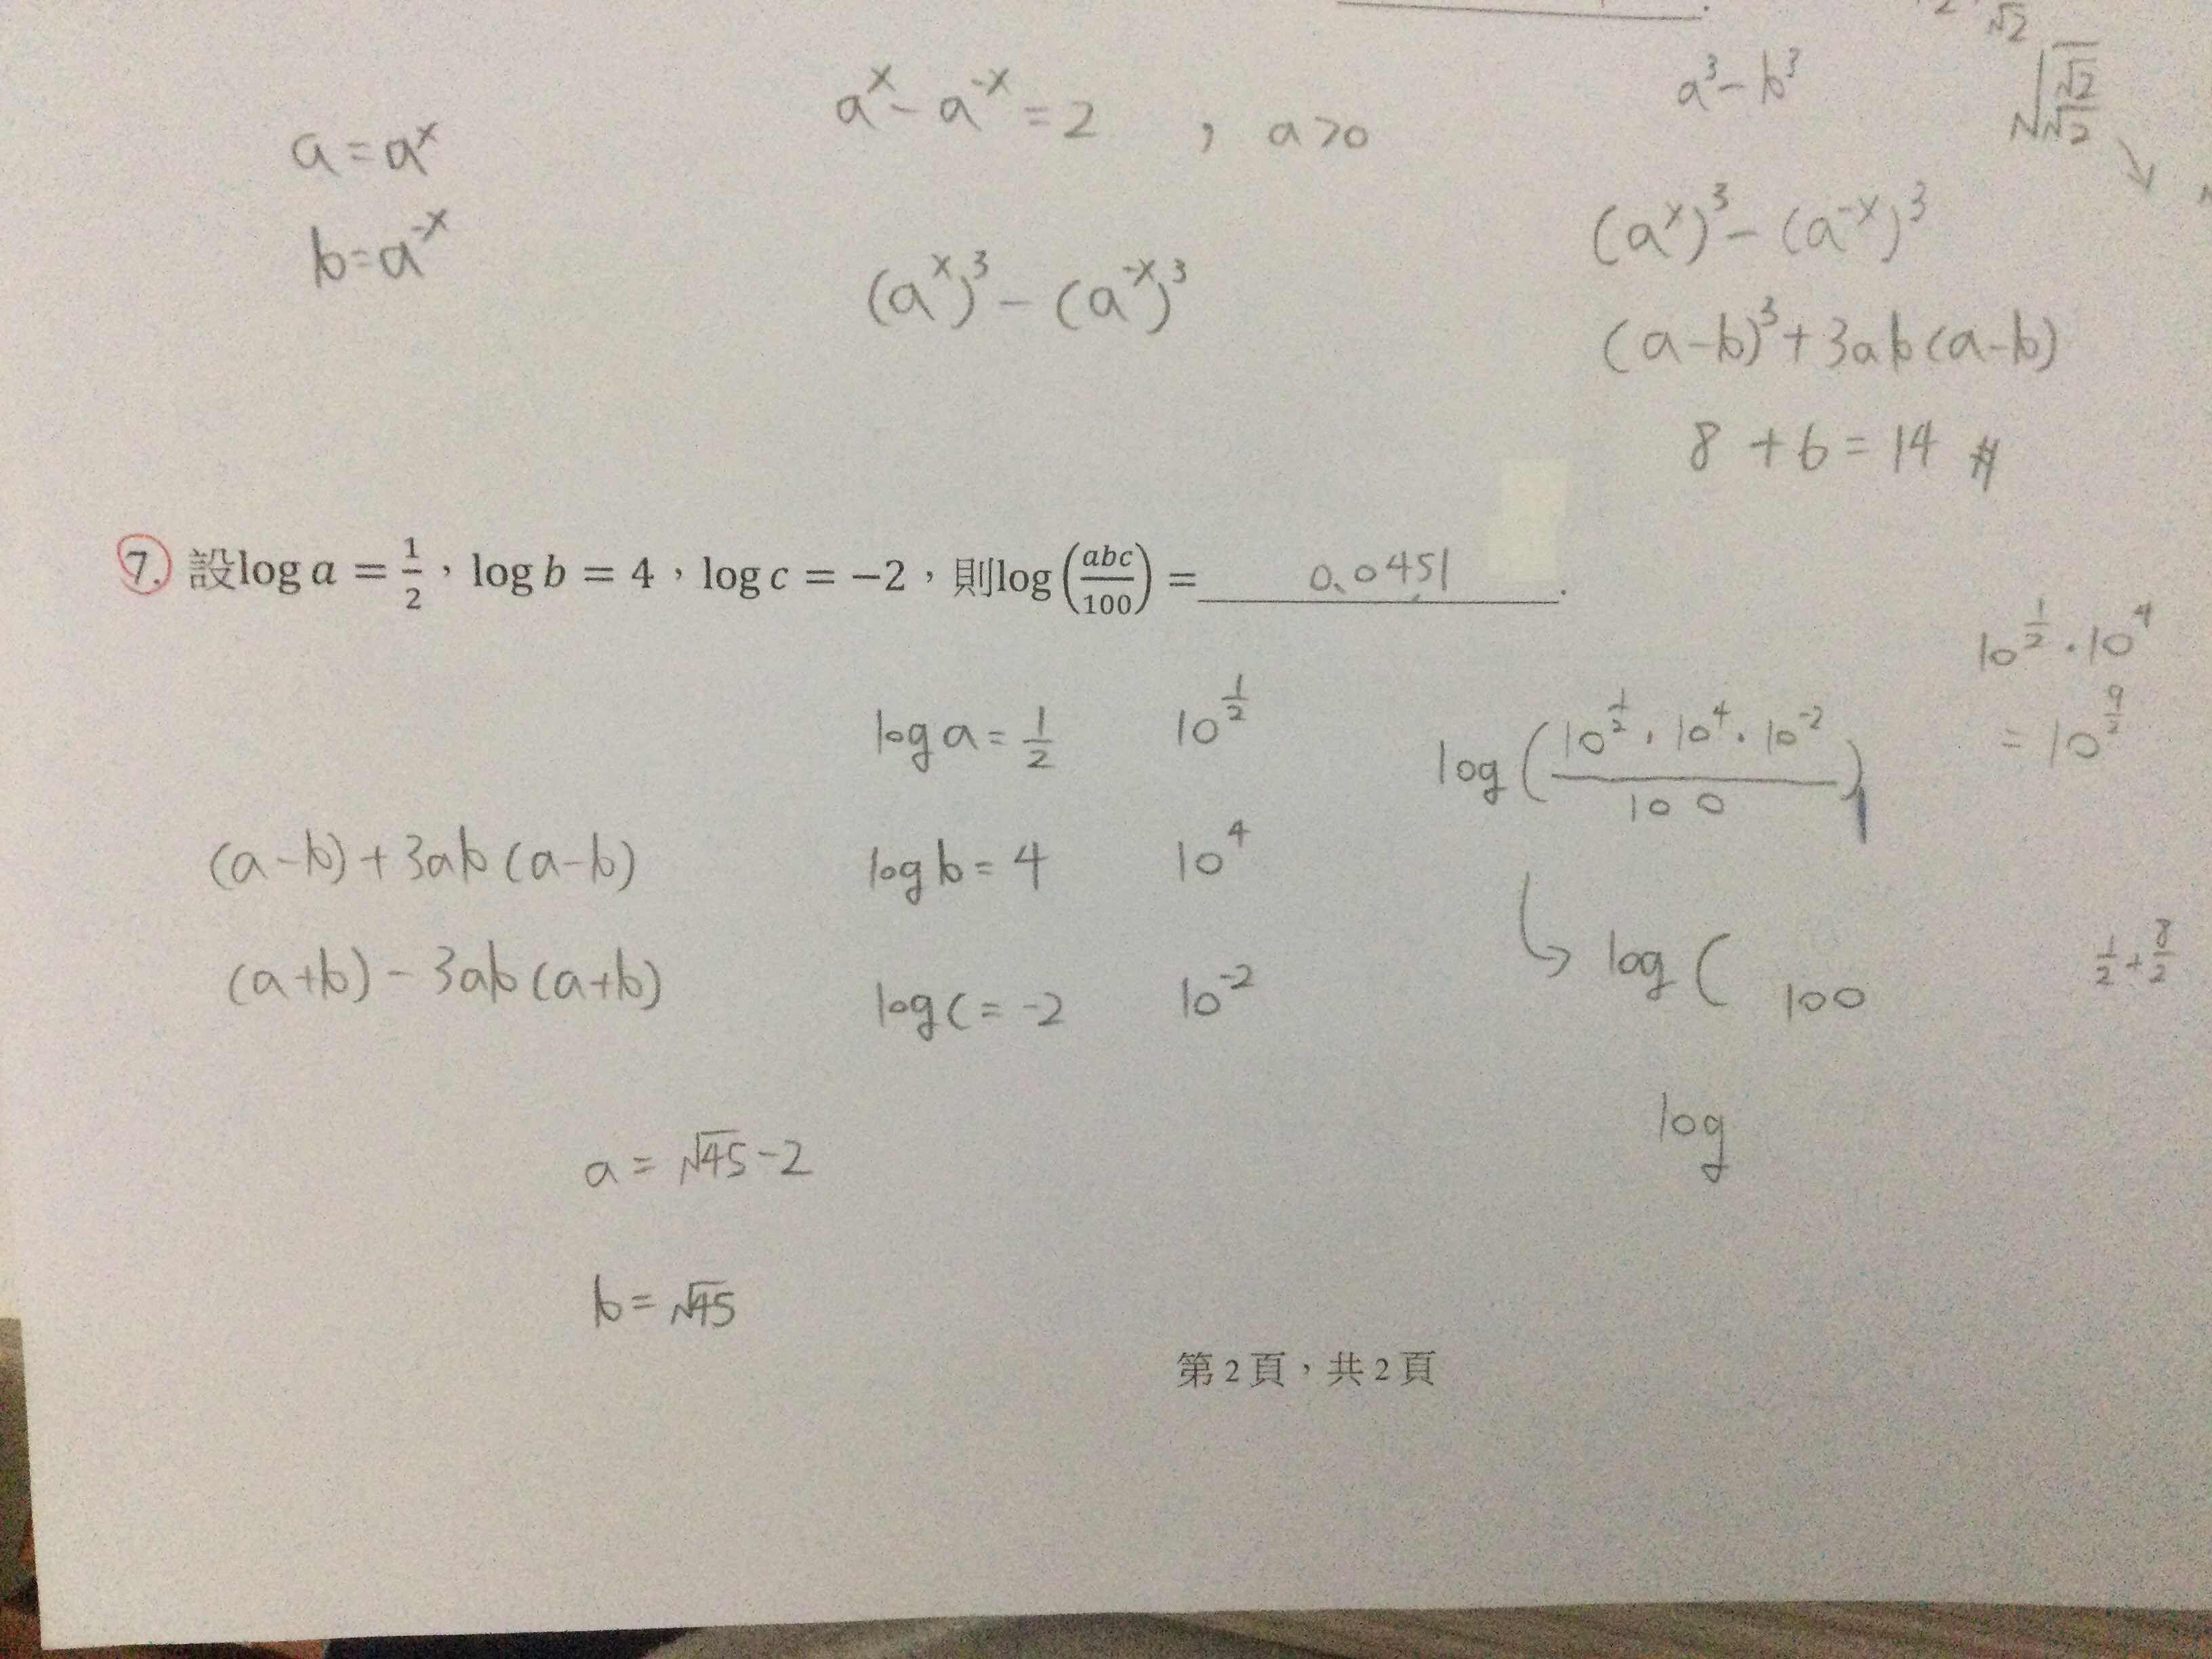 √2
a^x - a^-x = 2 , a>0
a³-b³
√(√2/√2)
a = a^x
b = a^-x
(a^x)³ - (a^-x)³
(a^x)³ - (a^-x)³
(a-b)³+3ab(a-b)
8 + 6 = 14 #
7. 設log a = 1/2，log b = 4，log c = −2，則log(abc/100) = 0.0451.
10^(1/2) · 10^4
= 10^(9/2)
log a = 1/2 10^(1/2)
log(10^(1/2) · 10^4 · 10^-2 / 100)
(a-b)+3ab(a-b)
log b = 4 10^4
(a+b)-3ab(a+b)
log c = -2 10^-2
log( 100
1/2 + 8/2
log
a = √45 -2
b = √45
第 2 頁，共 2 頁